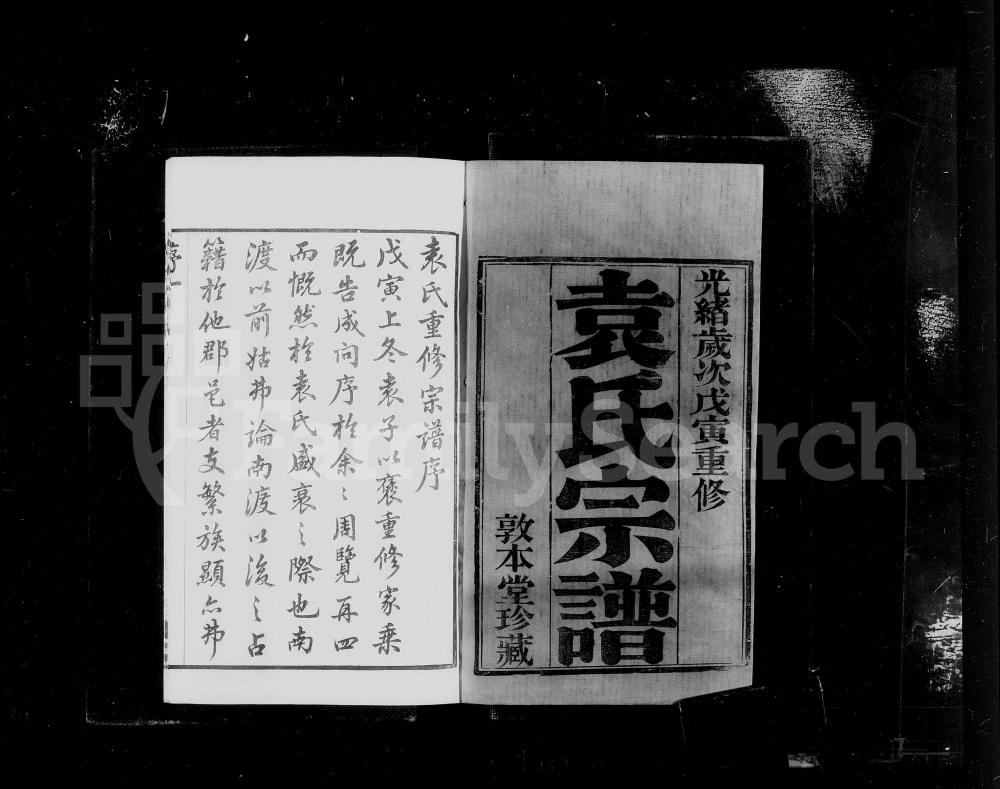 光緒歲次戊寅重修
袁氏宗譜
敦本堂珍藏
袁氏重修宗譜序
戊寅上冬袁子以褒重修家乘
既告成問序於余〻周覽再四
而慨然於袁氏盛衰之際也南
渡以前姑弗論南渡以後之占
籍於他郡邑者支繁族顯亦弗
序一
FamilySearch